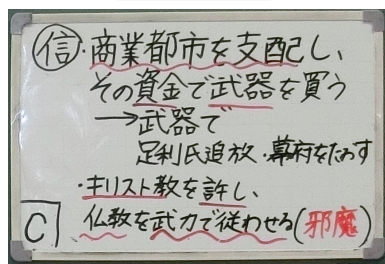 信・商業都市を支配し、
その資金で武器を買う
→武器で
足利氏追放・幕府をたおす
・キリスト教を許し、
仏教を武力で従わせる(邪魔)
C